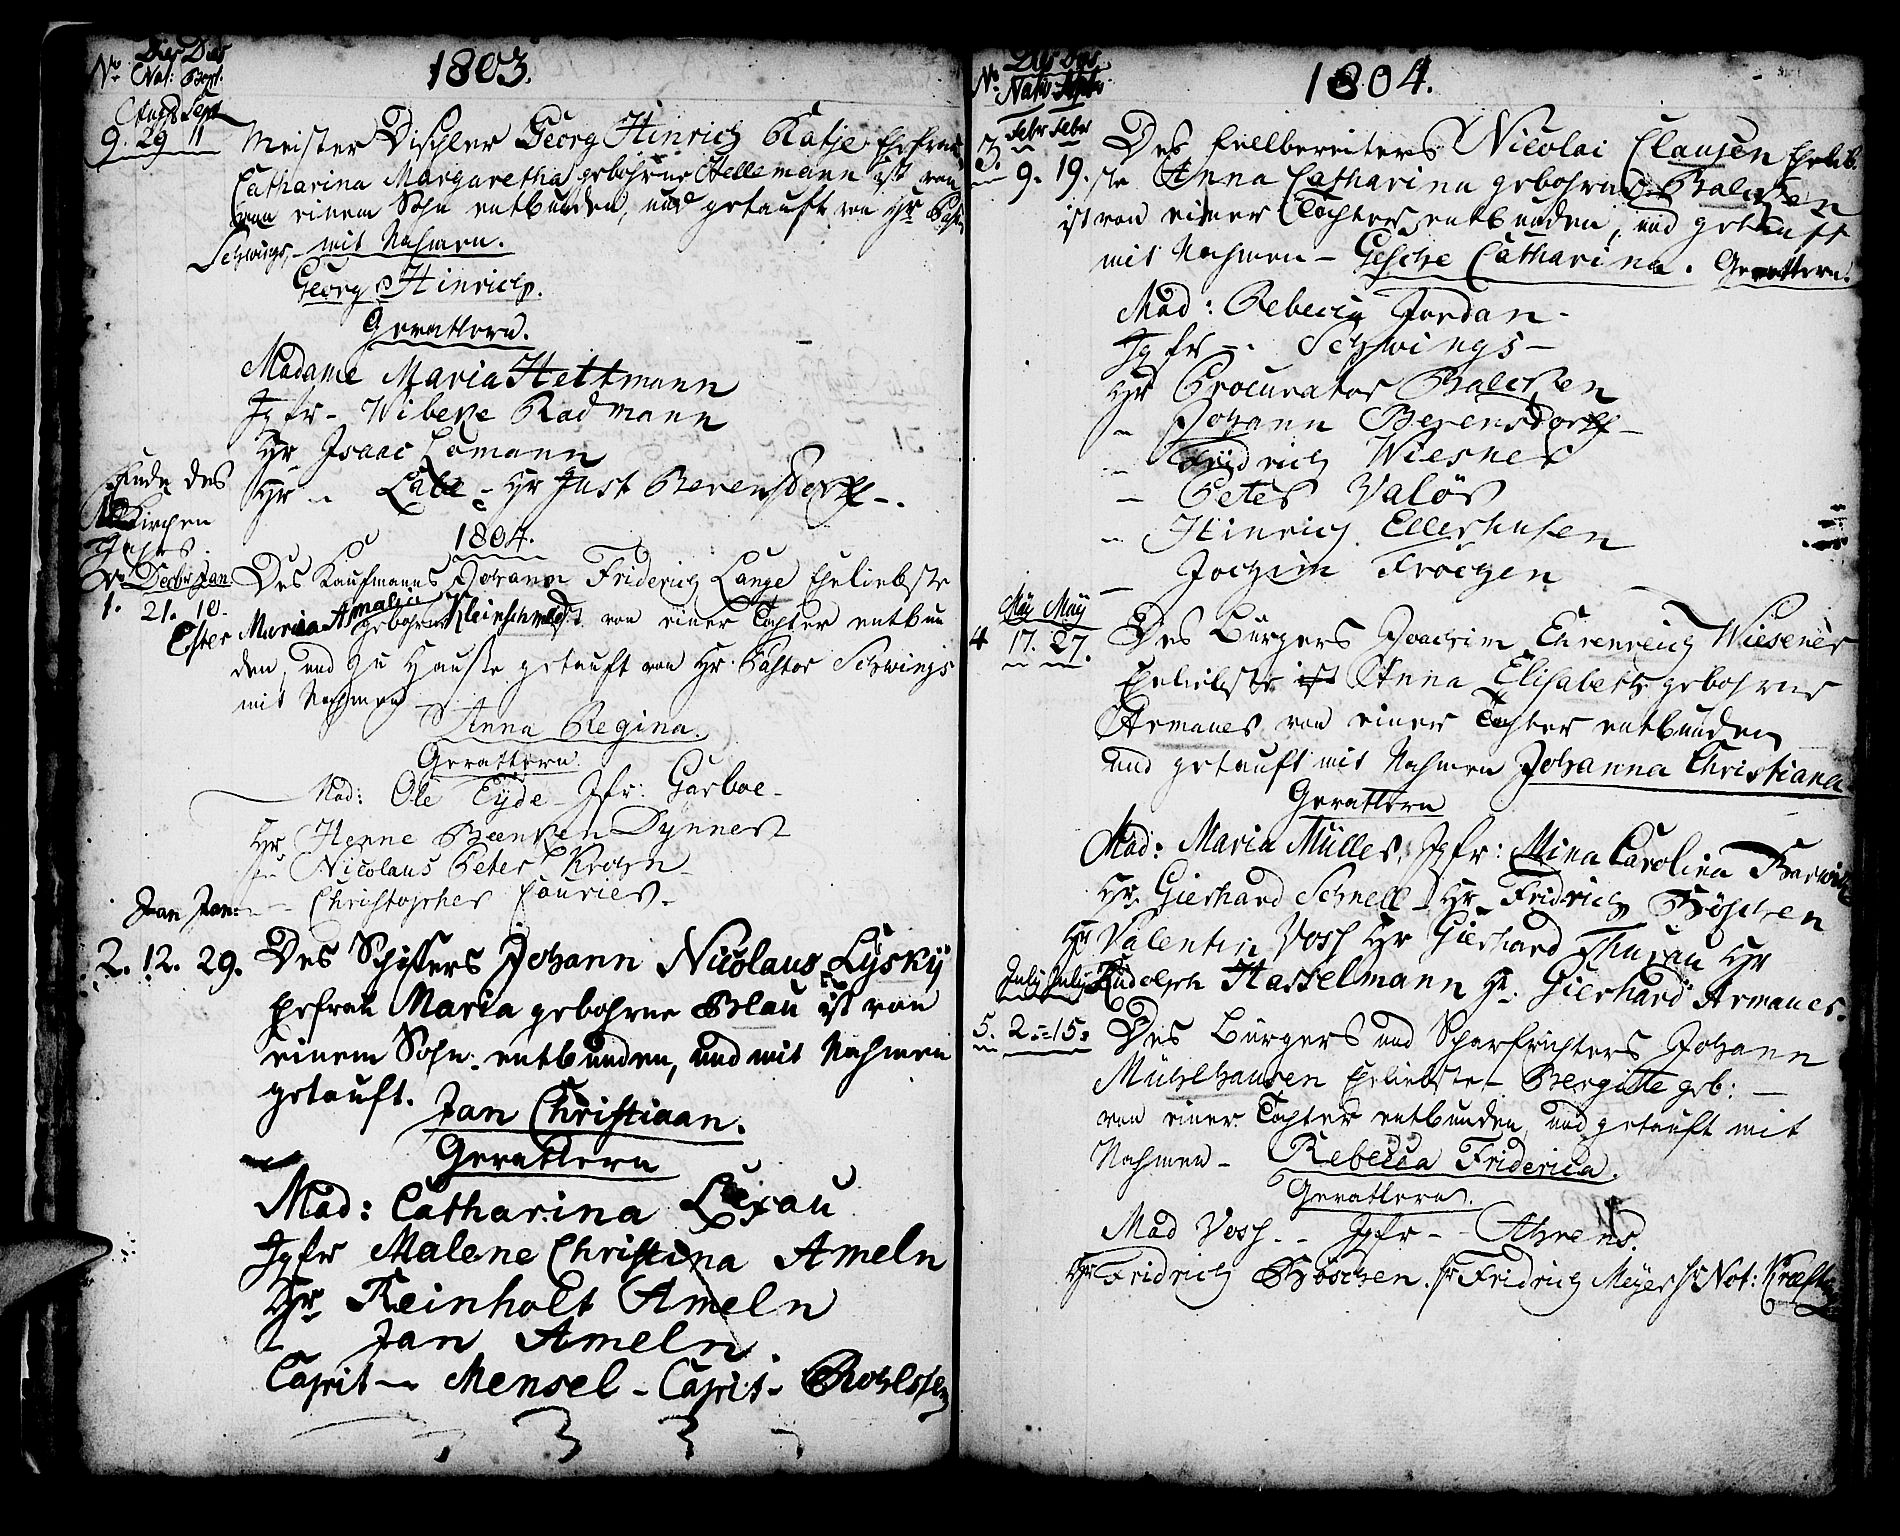 1803.
No Dies Dies
Nat: Bapt.
Aug. Sept.
9. 29 11 Meister Dischler Georg Hinrich Katje Ehefrau
Catharina Margaretha gebohrne Hellemann ist von
von einem Sohn entbunden, und getauft von Hr Past.
Schwings, mit Nahmen.
Georg Hinrich.
Gevattern.
Madame Maria Hettmann
Jgfr - Wibeke Radmann
Hr Isaac Lomann
Hr - Hr Just Berensdorff -.
Ende des
Kirchen
Jahrs.
1804.
No Decbr Jan.
1. 21. 10. Des Kaufmanns Johann Friderich Lange Eheliebste
Ester Maria Amalia gebohrne Kleinschmidt von einer Tochter entbun
den, und zu Hausse getauft von Hr. Pastor Schwings
mit Nahmen
Anna Regina.
Gevattern
Mad: Ole Eyde - Jfr: Garboe -
Hr Henne Beenken Dynnest
- Nicolaus Peter Krohn -
- Christopher Fouries -
Jan Jan:
2. 12. 29. Des Schiffers Johann Nicolaus Lysky
Ehefrau Maria gebohrne Blau ist von
einem Sohn entbunden, und mit Nahmen
getauft. Jan Christiaan.
Gevattern
Mad: Catharina Lexau
Jgfr Malene Christina Ameln
Hr Reinholt Ameln
- Jan Ameln.
Capit - Mensel - Capit - Bohlssen
1804.
No Dies Dies
Nativ Bapt.
Febr Febr
3. 9. 19. Des Fellbereiters Nicolai Clausen Ehelieb-
ste Anna Catharina gebohrne Balchen
ist von einer Tochter entbunden, und getauft
mit Nahmen - Gesche Catharina. Gevattern.
Mad: Rebecca Jordan -
Jgfr - Schwings -
Hr Procurator Balchen
- Johann Berensdorff -
- Fridrich Wiesner
- Peter Valör
- Hinrich Ellerhusen
- Jochim Frochen
May May
4 17. 27. Des Bürgers Joachim Ehrenreich Wiesener
Eheliebste ist Anna Elisabeth gebohrne
Armanes von einer Tochter entbunden
und getauft mit Nahmen Johanna Christiana
Gevattern
Mad: Maria Müller, Jgfr: Mina Carolina Barwick
Hr. Gierhard Schnell - Hr Fridrich Böschen
Hr Valentin Vosh Hr Gierhard Thurau Hr
Rudolph Hasselmann Hr. Gierhard Armanes.
July July
5. 2. 15. Des Bürgers und Scharfrichters Johann
Mühlhausen Eheliebste - Bergitte geb: -
von einer Tochter entbunden, und getauft mit
Nahmen - Rebecca Friderica.
Gevattern.
Mad Vosh - Jgfr - Ahrens.
Hr Fridrich Böschen. Hr Fridrich Meyer Hr Not: